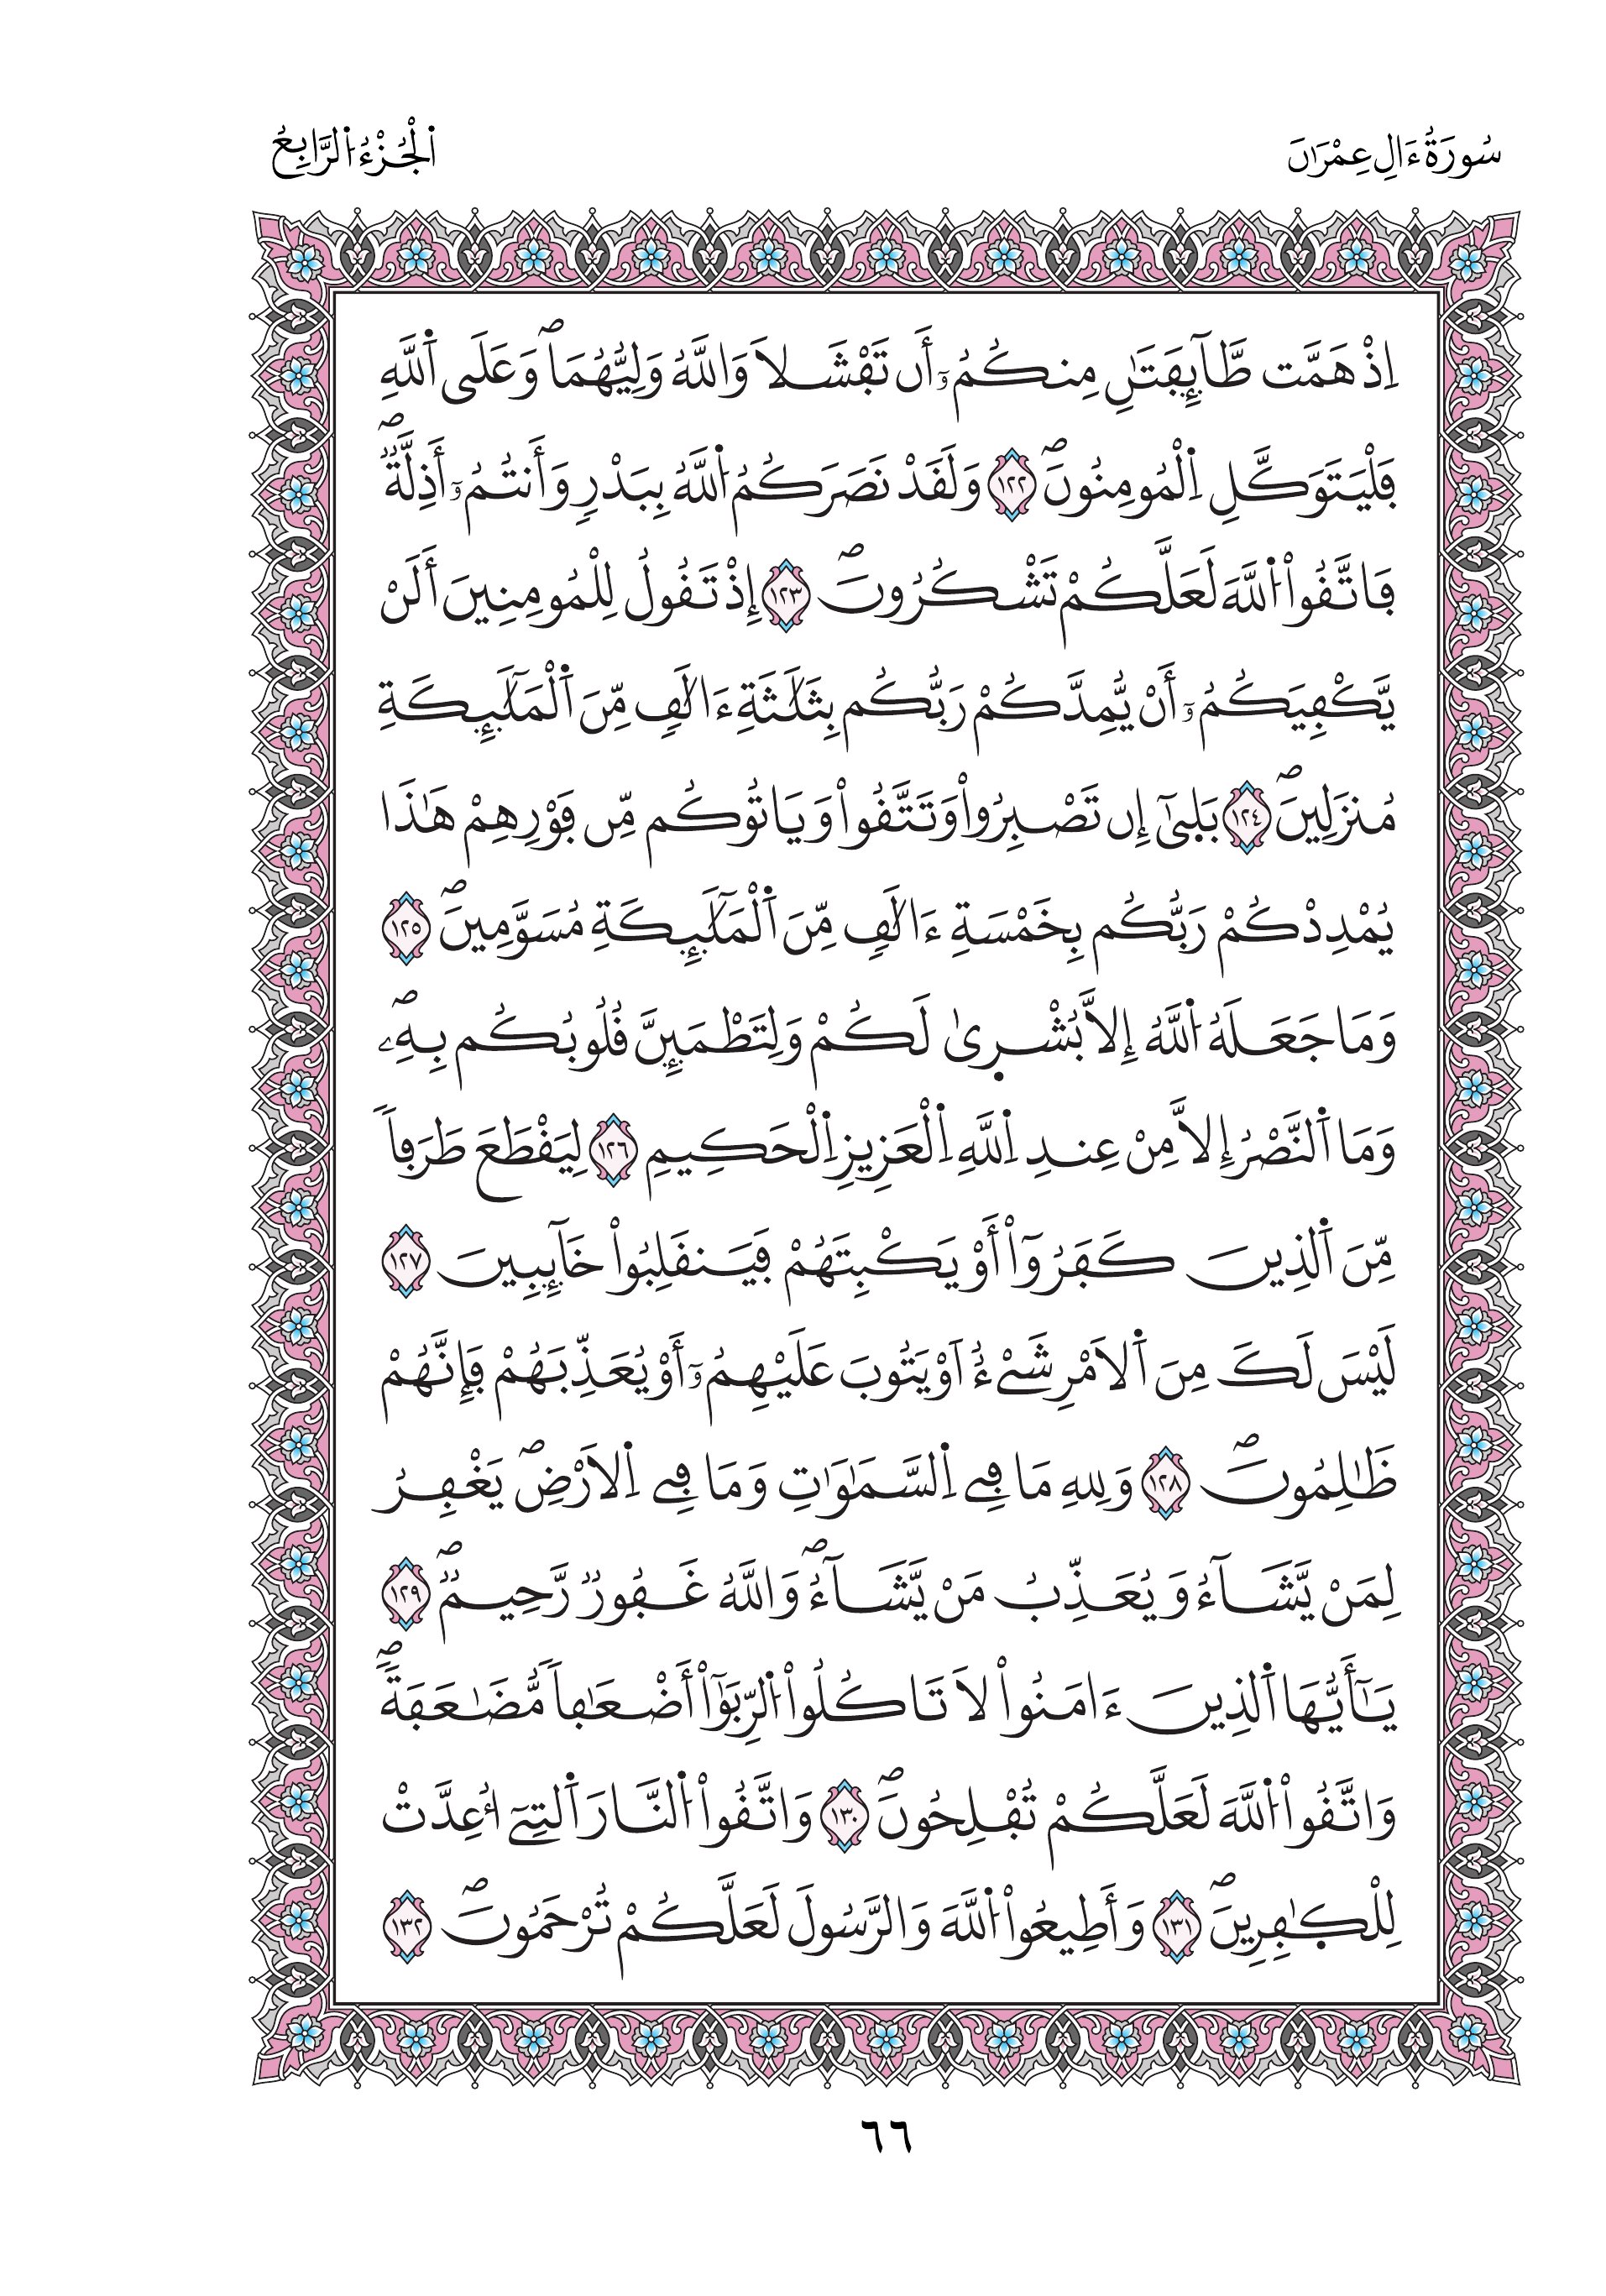 سُورَةُ ءَالِ عِمْرَٰنَ
اَ۬لْجُزْءُ اُ۬لرَّابِعُ
إِذْ هَمَّت طَّآئِفَتَٰنِ مِنكُمُۥٓ أَن تَفْشَلَا وَاللَّهُ وَلِيُّهُمَاۖ وَعَلَى اَ۬للَّهِ
فَلْيَتَوَكَّلِ اِ۬لْمُومِنُونَۖ ١٢٢ وَلَقَدْ نَصَرَكُمُ اُ۬للَّهُ بِبَدْرٖ وَأَنتُمُۥٓ أَذِلَّةٞۖ
فَاتَّقُواْ اُ۬للَّهَ لَعَلَّكُمْ تَشْكُرُونَۖ ١٢٣ إِذْ تَقُولُ لِلْمُومِنِينَ أَلَنْ
يَّكْفِيَكُمُۥٓ أَنْ يُّمِدَّكُمْ رَبُّكُم بِثَلَٰثَةِ ءَالَٰفٖ مِّنَ اَ۬لْمَلَٰٓئِكَةِ
مُنزَلِينَۖ ١٢٤ بَلَىٰٓ إِن تَصْبِرُواْ وَتَتَّقُواْ وَيَاتُوكُم مِّن فَوْرِهِمْ هَٰذَا
يُمْدِدْكُمْ رَبُّكُم بِخَمْسَةِ ءَالَٰفٖ مِّنَ اَ۬لْمَلَٰٓئِكَةِ مُسَوَّمِينَۖ ١٢٥
وَمَا جَعَلَهُ اُ۬للَّهُ إِلَّا بُشْرٜىٰ لَكُمْ وَلِتَطْمَئِنَّ قُلُوبُكُم بِهِۦۖ
وَمَا اَ۬لنَّصْرُ إِلَّا مِنْ عِندِ اِ۬للَّهِ اِ۬لْعَزِيزِ اِ۬لْحَكِيمِ ١٢٦ لِيَقْطَعَ طَرَفاٗ
مِّنَ اَ۬لذِينَ كَفَرُوٓاْ أَوْ يَكْبِتَهُمْ فَيَنقَلِبُواْ خَآئِبِينَ ١٢٧
لَيْسَ لَكَ مِنَ اَ۬لَامْرِ شَےْءٌ اَوْ يَتُوبَ عَلَيْهِمُۥٓ أَوْ يُعَذِّبَهُمْ فَإِنَّهُمْ
ظَٰلِمُونَۖ ١٢٨ وَلِلهِ مَا فِے اِ۬لسَّمَٰوَٰتِ وَمَا فِے اِ۬لَارْضِۖ يَغْفِرُ
لِمَنْ يَّشَآءُ وَيُعَذِّبُ مَنْ يَّشَآءُۖ وَاللَّهُ غَفُورٞ رَّحِيمٞۖ ١٢٩
يَٰٓأَيُّهَا اَ۬لذِينَ ءَامَنُواْ لَا تَاكُلُواْ اُ۬لرِّبَوٰٓاْ أَضْعَٰفاٗ مُّضَٰعَفَةٗۖ
وَاتَّقُواْ اُ۬للَّهَ لَعَلَّكُمْ تُفْلِحُونَۖ ١٣٠ وَاتَّقُواْ اُ۬لنَّارَ اَ۬لتِےٓ أُعِدَّتْ
لِلْكٰٜفِرِينَۖ ١٣١ وَأَطِيعُواْ اُ۬للَّهَ وَالرَّسُولَ لَعَلَّكُمْ تُرْحَمُونَۖ ١٣٢
٦٦